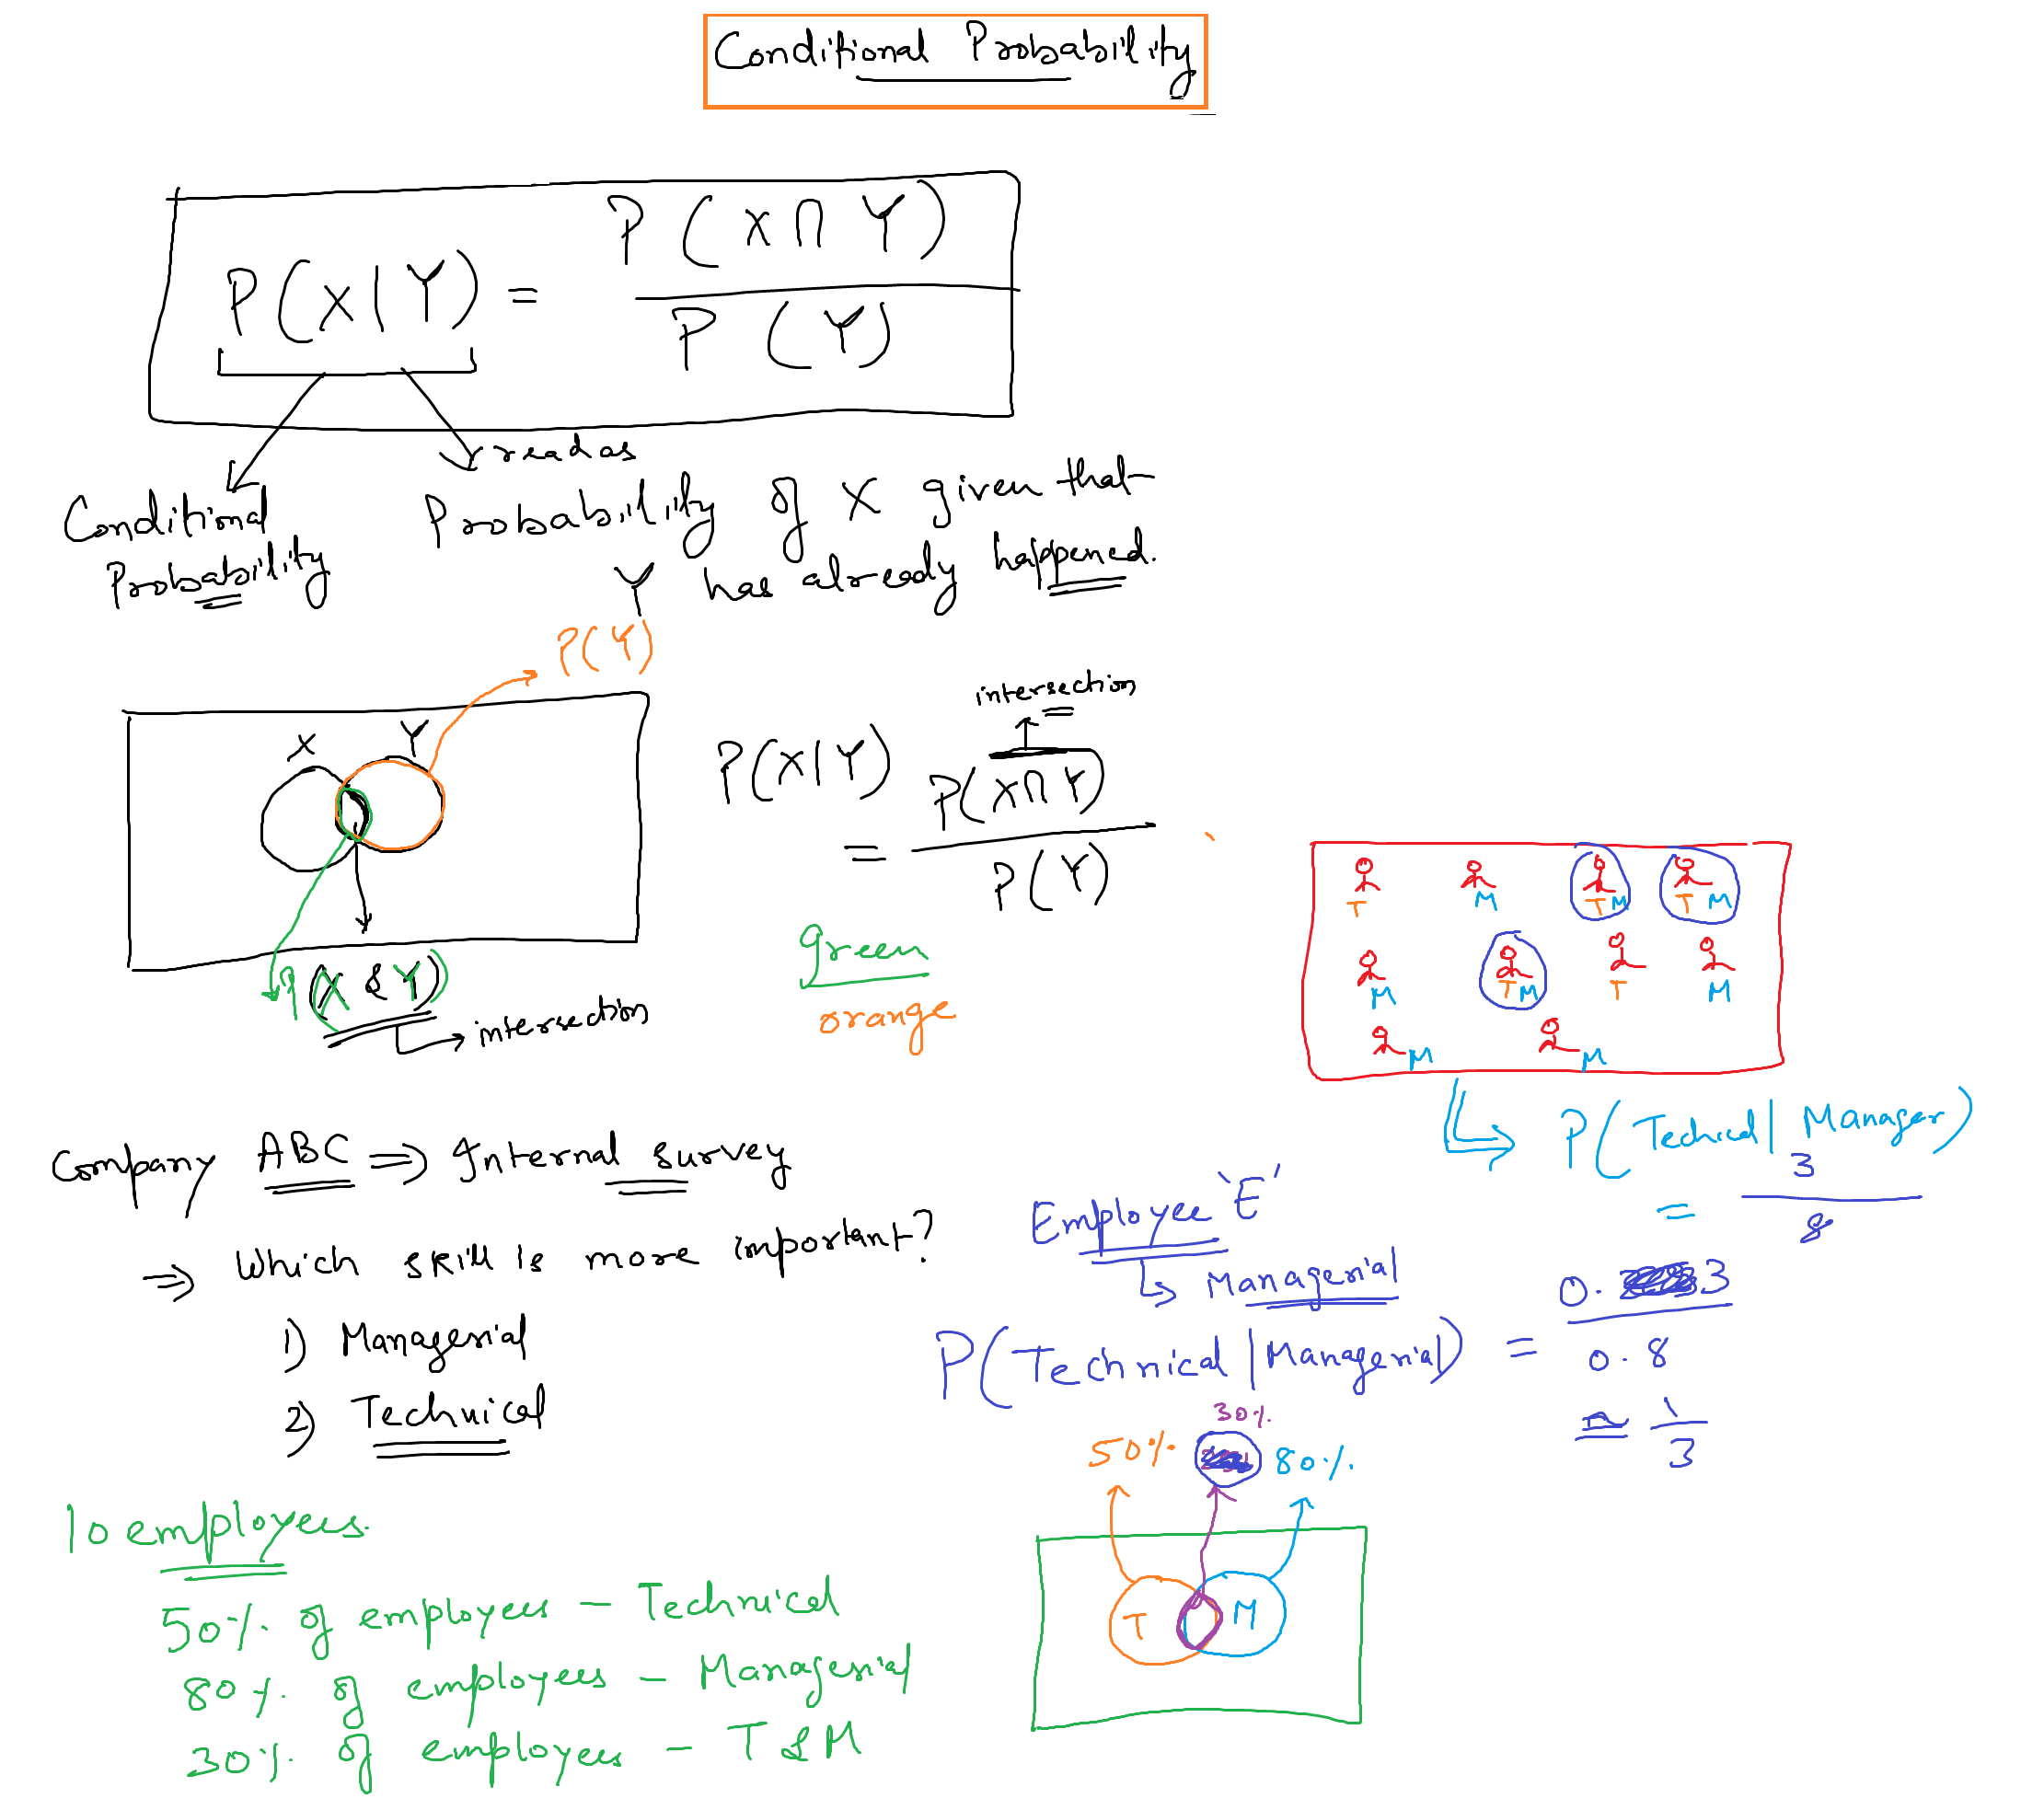 Conditional Probability
P(X|Y) = P(X∩Y) / P(Y)
read as
Conditional Probability
Probability of X given that
Y has already happened.
P(Y)
X Y
P(X & Y)
intersection
intersection
P(X|Y)
= P(X∩Y) / P(Y)
green
orange
T M TM T M
M TM T M
M M
P(Technical | Manager)
= 3 / 8
Company ABC ⇒ Internal survey
⇒ Which skill is more important?
1) Managerial
2) Technical
Employee 'E'
↳ Managerial
P(Technical | Managerial) = 0.3 / 0.8
≃ 1/3
30%
50% 80%
T M
10 employees.
50% of employees – Technical
80% of employees – Managerial
30% of employees – T & M